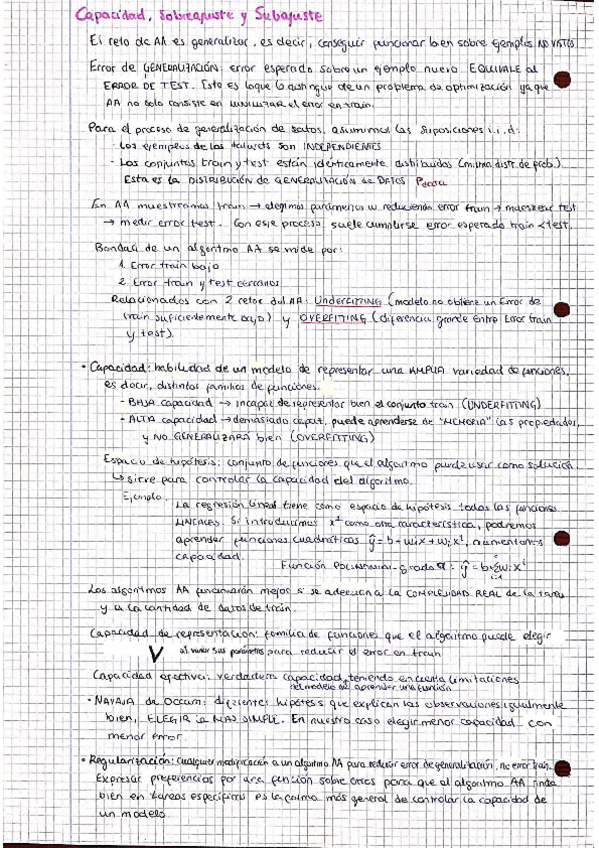 Capacidad, Sobreajuste y Subajuste
El reto de AA es generalizar, es decir, conseguir funcionar bien sobre ejemplos NO VISTOS.
Error de GENERALIZACIÓN: error esperado sobre un ejemplo nuevo. EQUIVALE al
ERROR DE TEST. Esto es lo que lo distingue de un problema de optimización ya que
AA no solo consiste en minimizar el error en train.
Para el proceso de generalización de datos, asumimos las suposiciones i.i.d:
- Los ejemplos de los datasets son INDEPENDIENTES
- Los conjuntos train y test están idénticamente distribuidos (misma distr. de prob.).
Esta es la DISTRIBUCIÓN de GENERALIZACIÓN de DATOS Pdata
En AA muestreamos train → elegimos parámetros w reduciendo error train → muestrear test
→ medir error test. Con este proceso suele cumplirse error esperado train < test.
Bondad de un algoritmo AA se mide por:
1. Error train bajo
2. Error train y test cercanos
Relacionados con 2 retos del AA: UNDERFITTING (modelo no obtiene un Error de
train suficientemente bajo) y OVERFITING (diferencia grande entre Error train
y test).
• Capacidad: habilidad de un modelo de representar una AMPLIA variedad de funciones,
es decir, distintas familias de funciones.
- BAJA capacidad → incapaz de representar bien el conjunto train (UNDERFITING)
- ALTA capacidad → demasiada capac., puede aprenderse de "MEMORIA" las propiedades,
y NO GENERALIZARÁ bien (OVERFITING)
Espacio de hipótesis: conjunto de funciones que el algoritmo puede usar como solución.
↳ sirve para controlar la capacidad del algoritmo.
Ejemplo.
La regresión lineal tiene como espacio de hipótesis todas las funciones
LINEALES. Si introducimos x² como otra característica, podremos
aprender funciones cuadráticas ŷ = b + w₁x + w₂x², aumentando
capacidad.
Función POLINOMIAL grado : ŷ = b + Σ wᵢxⁱ
i=1
Los algoritmos AA funcionarán mejor si se adecúan a la COMPLEJIDAD REAL de la tarea
y a la cantidad de datos de train.
Capacidad de representación: familia de funciones que el algoritmo puede elegir
al variar sus parámetros para reducir el error en train
V
Capacidad efectiva: verdadera capacidad, teniendo en cuenta limitaciones
del modelo al aprender una función
• NAVAJA de Occam: diferentes hipótesis que explican las observaciones igualmente
bien, ELEGIR la MÁS SIMPLE. En nuestro caso elegir menor capacidad con
menor error.
• Regularización: cualquier modificación a un algoritmo AA para reducir error de generalización, no error train.
Expresar preferencias por una función sobre otras para que el algoritmo AA rinda
bien en tareas específicas es la forma más general de controlar la capacidad de
un modelo.